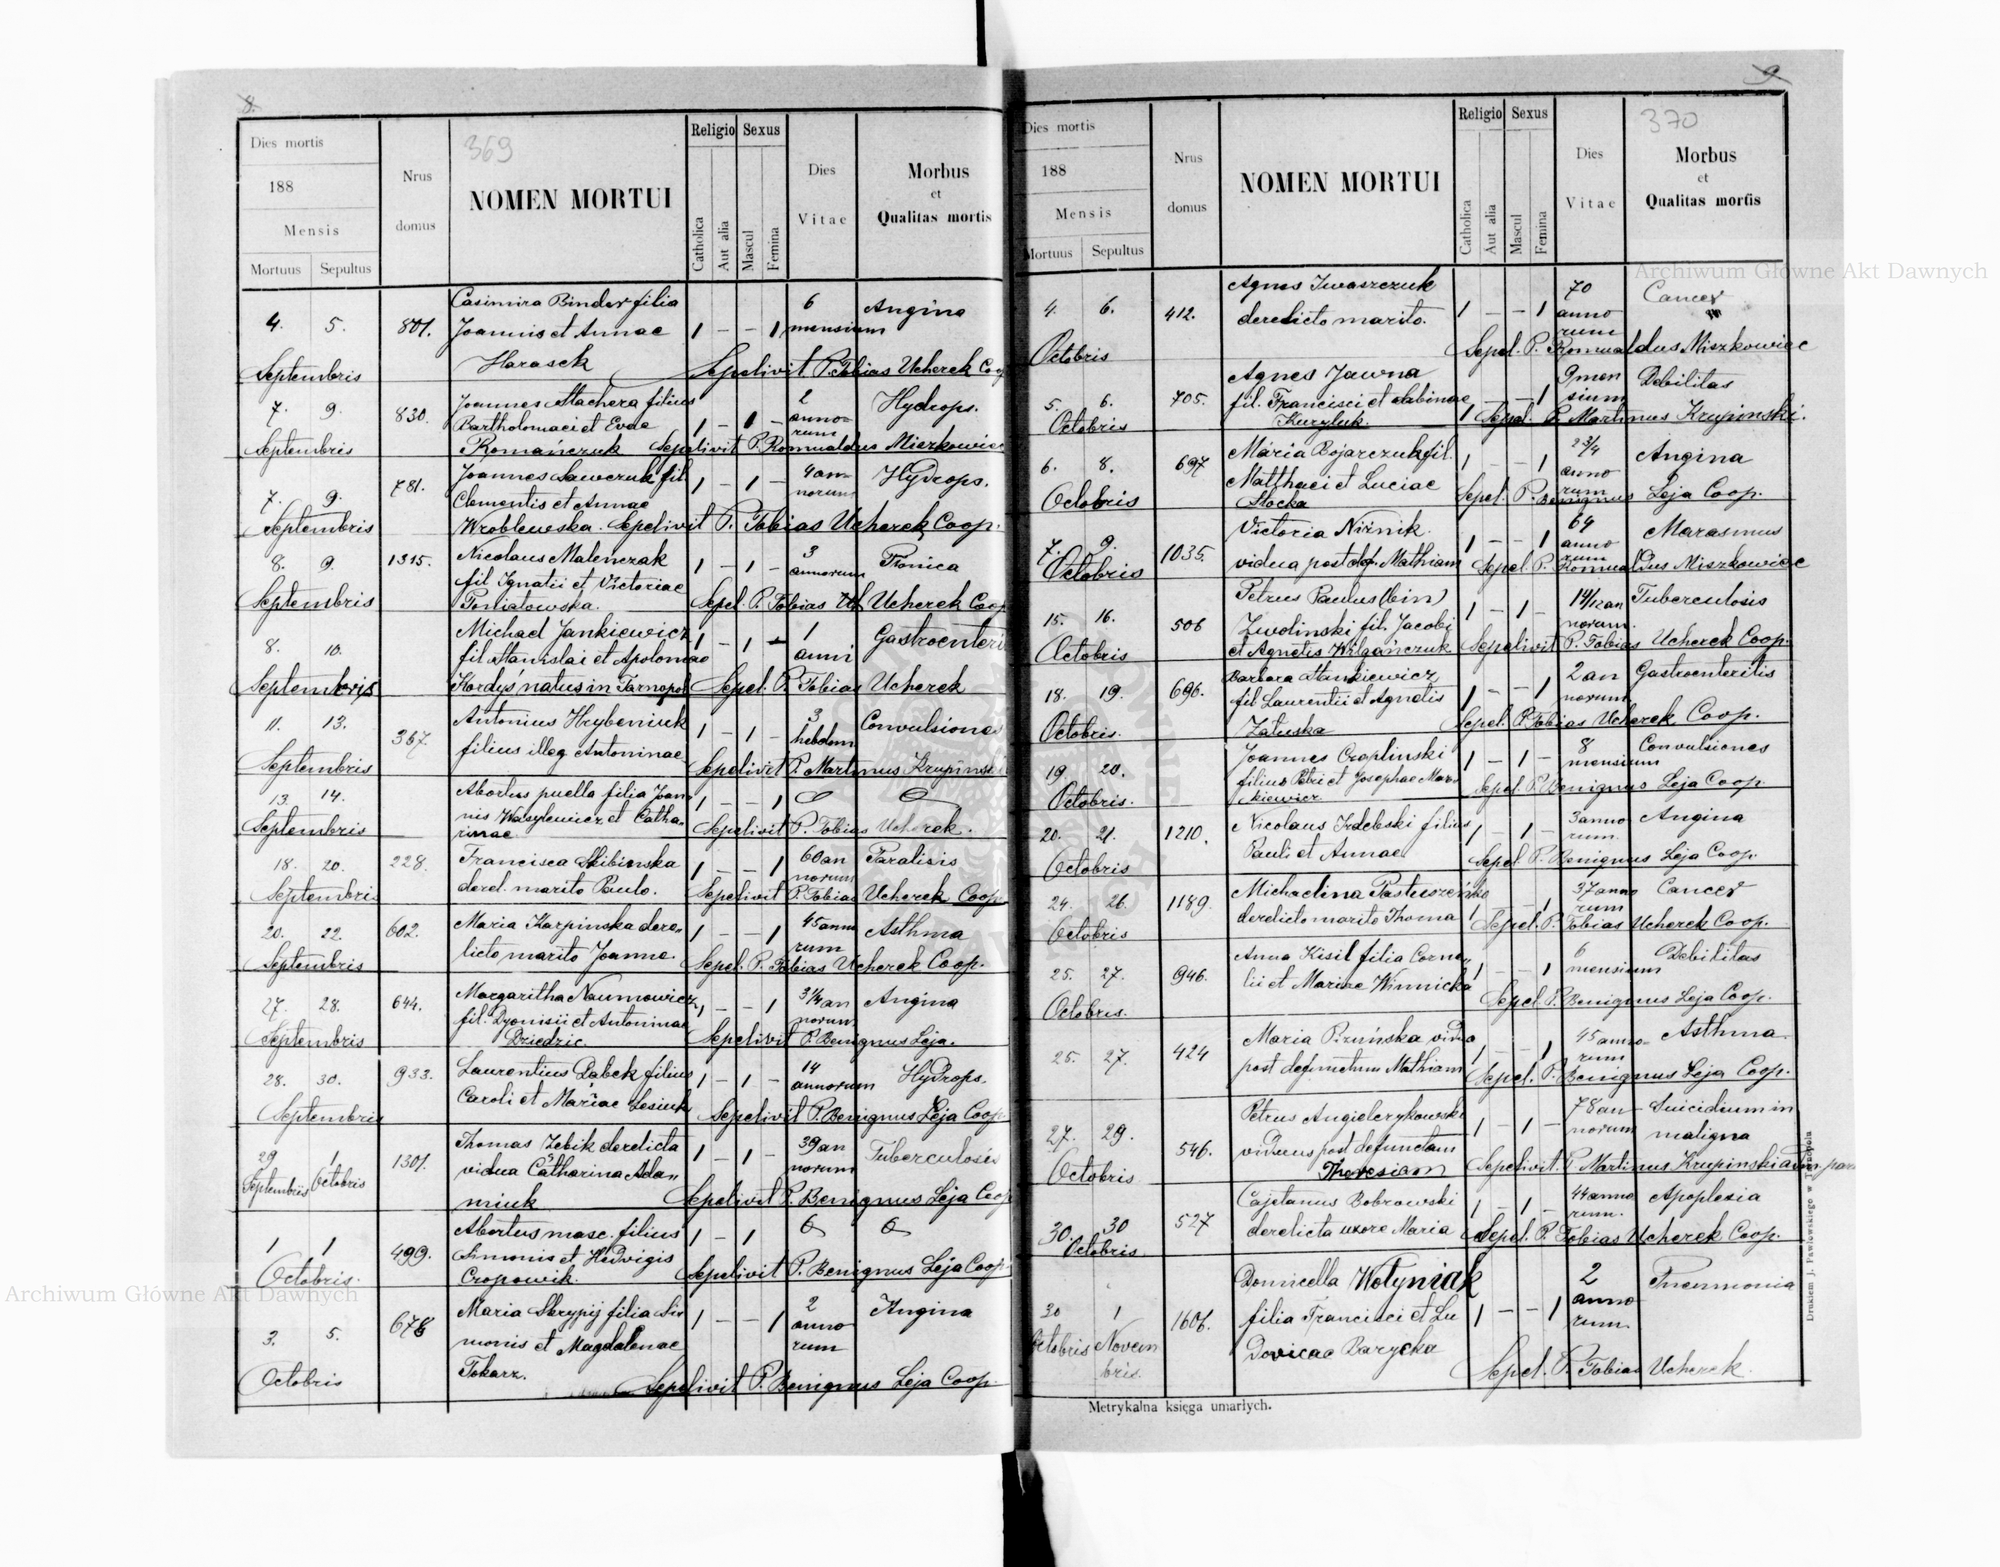 8.
Dies mortis
188
Mensis
Mortuus Sepultus
Nrus domus
369
NOMEN MORTUI
Religio Sexus
Catholica
Aut alia
Mascul
Femina
Dies Vitae
Morbus
et
Qualitas mortis
Casimira Binder filia 6 Angina
4. 5. 801. Joannis et Annae 1 - - 1 mensium
Septembris Harasek Sepelivit P. Tobias Ucherek Coop
Joannes Stachera filius 2 Hydrops.
7. 9. 830. Bartholomaei et Evae 1 - 1 - anno-
rum
Septembris Romańczuk Sepelivit P. Romualdus Miszkowicz
Joannes Sawczuk fil. 4 an- Hydrops.
7. 9. 781. Clementis et Annae 1 - 1 - norum
Septembris Wroblewska. Sepelivit P. Tobias Ucherek Coop.
8. 9. 1315. Nicolaus Malenczak 1 - 1 - 3 annorum
fil Ignatii et Victoriae
Septembris Poniatowska. Sepel. P. Tobias Ucherek Coop
Michael Jankiewicz 1 Gastroenteri
8. 10. fil Stanislai et Apoloniae 1 - 1 - anni
Septembris Kordys natus in Tarnopol Sepel. P. Tobias Ucherek
11. 13. 367. Antonius Hrybeniuk 1 - 1 - 3 hebdom Convulsiones
filius illeg Antoninae
Septembris Sepelivit P. Martinus Krupinski
13. 14. Abortus puella filia Joan 1 - - 1
nis Wasylewicz et Catha-
Septembris rinae Sepelivit P. Tobias Ucherek.
18. 20. 228. Francisca Skibinska 1 - - 1 60 an Paralisis
norum
Septembris derel. marito Paulo. Sepelivit P. Tobias Ucherek Coop
20. 22. 602. Maria Karpinska dere- 1 - - 1 45 anno Asthma
rum
Septembris licto marito Joanne. Sepel. P. Tobias Ucherek Coop.
27. 28. 644. Margaritha Naumowicz 1 - - 1 3 1/4 an Angina
fil. Dyonisii et Antoninae norum
Septembris Dziedzic. Sepelivit P. Benignus Leja.
28. 30. 933. Laurentius Babek filius 1 - 1 - 14 annorum Hydrops.
Caroli et Mariae Lesiuk
Septembris Sepelivit P. Benignus Leja Coop
29 1 1301. Thomas Zebik derelicta 1 - 1 - 39 an Tuberculosis
Septembris Octobris vidua Catharina Ada- norum
miuk Sepelivit P. Benignus Leja Coop
1 1 499. Abortus masc. filius 1 - 1
Simonis et Hedvigis
Octobris. Cropowik. Sepelivit P. Benignus Leja Coop.
3. 5. Maria Skrypij filia Si- 1 - - 1 2 Angina
monis et Magdalenae anno
rum
Octobris Tokarz. Sepelivit P. Benignus Leja Coop.
9.
Dies mortis
188
Mensis
Mortuus Sepultus
Nrus domus
NOMEN MORTUI
Religio Sexus
Catholica
Aut alia
Mascul
Femina
Dies Vitae
370
Morbus
et
Qualitas mortis
Agnes Iwaszczuk 70 Cancer
4. 6. 412. derelicto marito. 1 - - 1 anno
rum
Octobris Sepel. P. Romualdus Miszkowicz
Agnes Jawna 9 men Debilitas
5. 6. 705. fil. Francisci et Sabinae 1 - - 1 sium
Octobris Kuryluk. Sepel. P. Martinus Krupinski.
6. 8. 697 Maria Bojarczuk fil. 1 - - 1 2 3/4 Angina
Matthaei et Luciae anno
rum
Octobris Stocka Sepel. P. Benignus Leja Coop.
Victoria Nirnik 64 Marasmus
7. 9. 1035. vidua post def. Mathiam 1 - - 1 anno
rum
Octobris Sepel. P. Romualdus Miszkowicz
Petrus Paulus (bin) 1 4/12 an Tuberculosis
15. 16. 506 Zwolinski fil. Jacobi 1 - 1 - norum.
Octobris et Agnetis Wilgańczuk Sepelivit P. Tobias Ucherek Coop.
18. 19. 696. Barbara Stankiewicz 1 - - 1 2 an Gastroenteritis
fil Laurentii et Agnetis norum
Octobris. Zaluska Sepel. P. Tobias Ucherek Coop.
19. 20. Joannes Croplinski 1 - 1 - 8 Convulsiones
filius Petri et Josephae Mar- mensium
Octobris. kiewicz Sepel. P. Benignus Leja Coop
20. 21. 1210. Nicolaus Irdebski filius 1 - 1 - 3 anno Angina
rum.
Octobris Pauli et Annae Sepel P. Benignus Leja Coop.
24. 26. 1189. Michaelina 37 anno Cancer
rum
Octobris derelicto marito Thoma 1 - - 1 Sepel. P. Tobias Ucherek Coop.
25. 27. 946. Anna Kisil filia Corne- 1 - - 1 6 Debilitas
lii et Mariae Winnicka mensium
Octobris. Sepel P. Benignus Leja Coop.
25. 27. 424 Maria vidua 1 - - 1 45 anno- Asthma
rum
post defunctum Mathiam Sepel. P. Benignus Leja Coop.
27. 29. 546. Petrus Angielczykowski 1 - 1 - 78 an Suicidium in
viduus post defunctam norum maligna
Octobris Theresiam Sepelivit. P. Martinus Krupinski
30. 30 527 Cajetanus Bobrowski 1 - 1 - 44 anno Apoplexia
rum.
Octobris derelicta uxore Maria Sepel. P. Tobias Ucherek Coop.
Domicella Wołyniak 2 Pneumonia
30 1 1606. filia Francisci et Lu 1 - - 1 anno
rum
Octobris Novem dovicae Barycka
bris. Sepel. P. Tobias Ucherek.
Metrykalna księga umarłych.
Drukiem J. Pawłowskiego w Tarnopolu
Archiwum Główne Akt Dawnych
Archiwum Główne Akt Dawnych